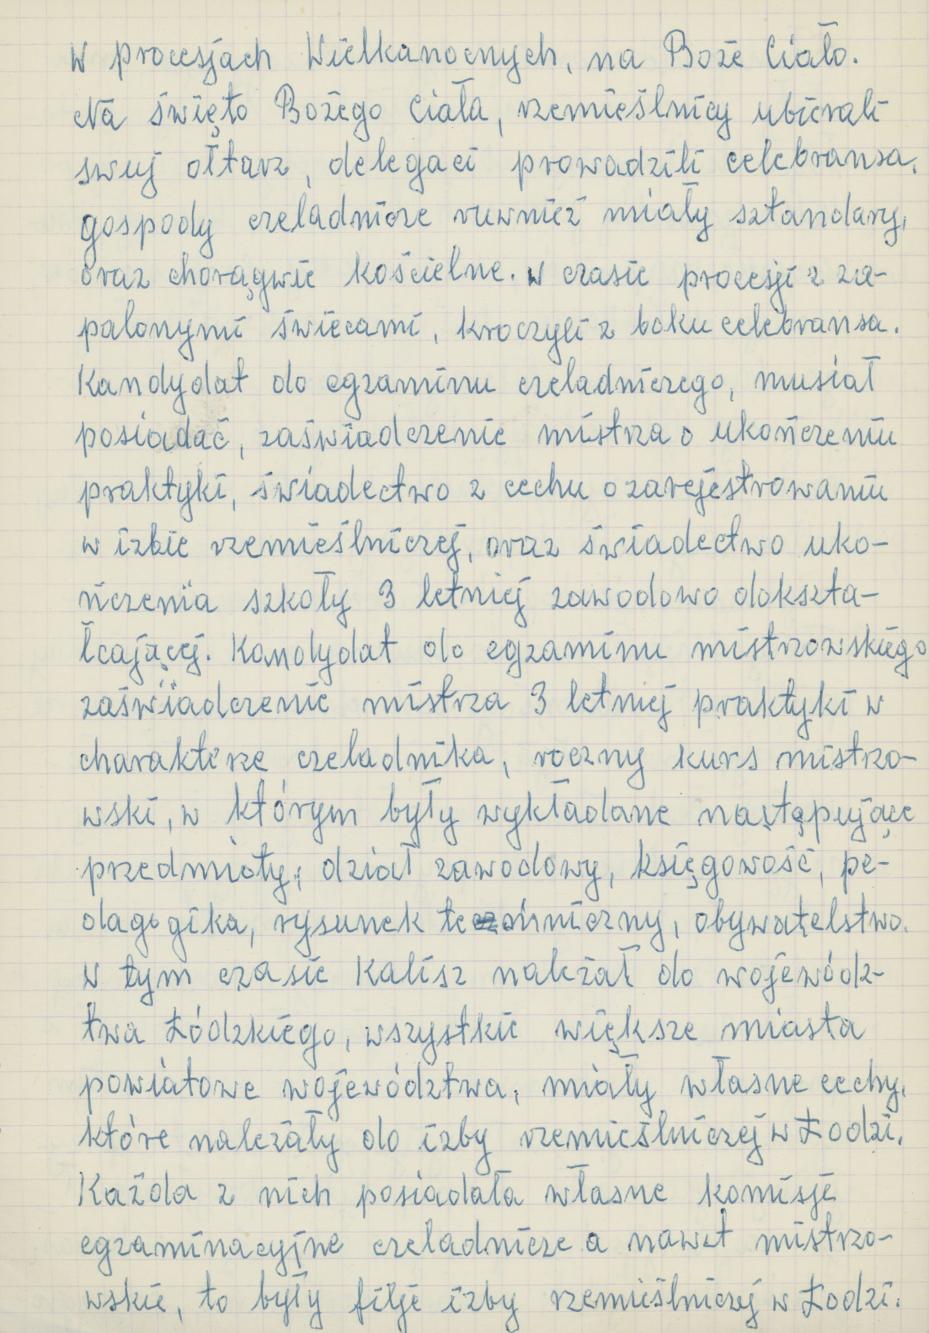 w procesjach Wielkanocnych, na Boże Ciało.
Na święto Bożego Ciała, rzemieślnicy ubierali
swuj ołtarz, delegaci prowadzili celebransa,
gospody czeladnicze ruwnież miały sztandary,
oraz chorągwie kościelne. w czasie procesji z za-
palonymi świecami, kroczyli z boku celebransa.
Kandydat do egzaminu czeladniczego, musiał
posiadać, zaświadczenie mistrza o ukończeniu
praktyki, świadectwo z cechu o zarejestrowaniu
w izbie rzemieślniczej, oraz świadectwo uko-
ńczenia szkoły 3 letniej zawodowo dokszta-
łcającej. Kandydat do egzaminu mistrzowskiego
zaświadczenie mistrza 3 letniej praktyki w
charakterze czeladnika, roczny kurs mistrzo-
wski, w którym były wykładane następujące
przedmioty, dział zawodowy, księgowość, pe-
dagogika, rysunek techniczny, obywatelstwo.
W tym czasie Kalisz należał do wojewódz-
twa Łódzkiego, wszystkie większe miasta
powiatowe województwa, miały własne cechy,
które należały do izby rzemieślniczej w Łodzi.
Każda z nich posiadała własne komisje
egzaminacyjne czeladnicze a nawet mistrzo-
wskie, to były filje izby rzemieślniczej w Łodzi.